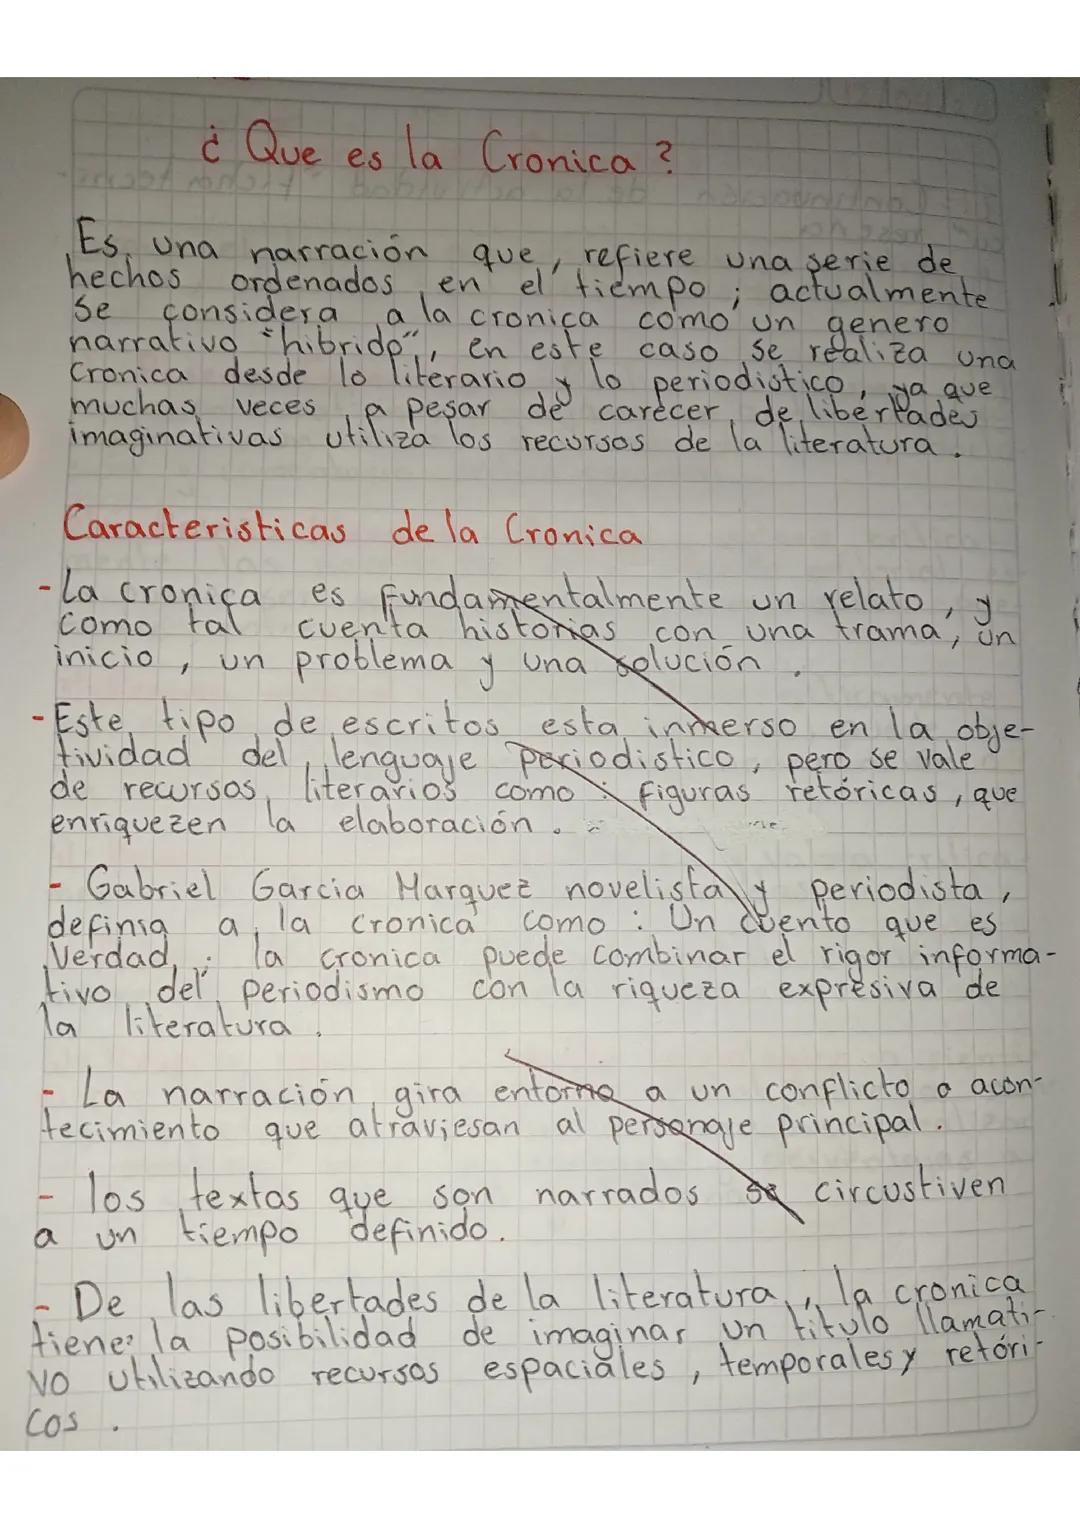 ¿ Que es la Cronica ?
Es, una narración que, refiere una serie de
hechos ordenados en el tiempo ; actualmente
se considera a la cronica como un genero
narrativo "hibrido", en este caso se realiza una
Cronica desde lo literario y lo periodistico, ya que
muchas veces, a pesar de carecer de libertades
imaginativas utiliza los recursos de la literatura.
Caracteristicas de la Cronica
- La cronica es fundamentalmente un relato, y
como tal cuenta historias con una trama, un
inicio, un problema y una solución.
- Este tipo de escritos esta inmerso en la obje-
tividad del lenguaje periodistico, pero se vale
de recursos literarios como : figuras retóricas, que
enriquezen la elaboración.
- Gabriel Garcia Marquez novelista y periodista,
definia a la cronica como : Un cuento que es
Verdad ; la cronica puede combinar el rigor informa-
tivo del periodismo con la riqueza expresiva de
la literatura.
- La narración gira entorno a un conflicto o acon-
tecimiento que atraviesan al personaje principal.
- los textos que son narrados se circustiven
a un tiempo definido.
- De las libertades de la literatura, la cronica
tiene: la posibilidad de imaginar un titulo llamati-
vo utilizando recursos espaciales, temporales y retóri-
cos.